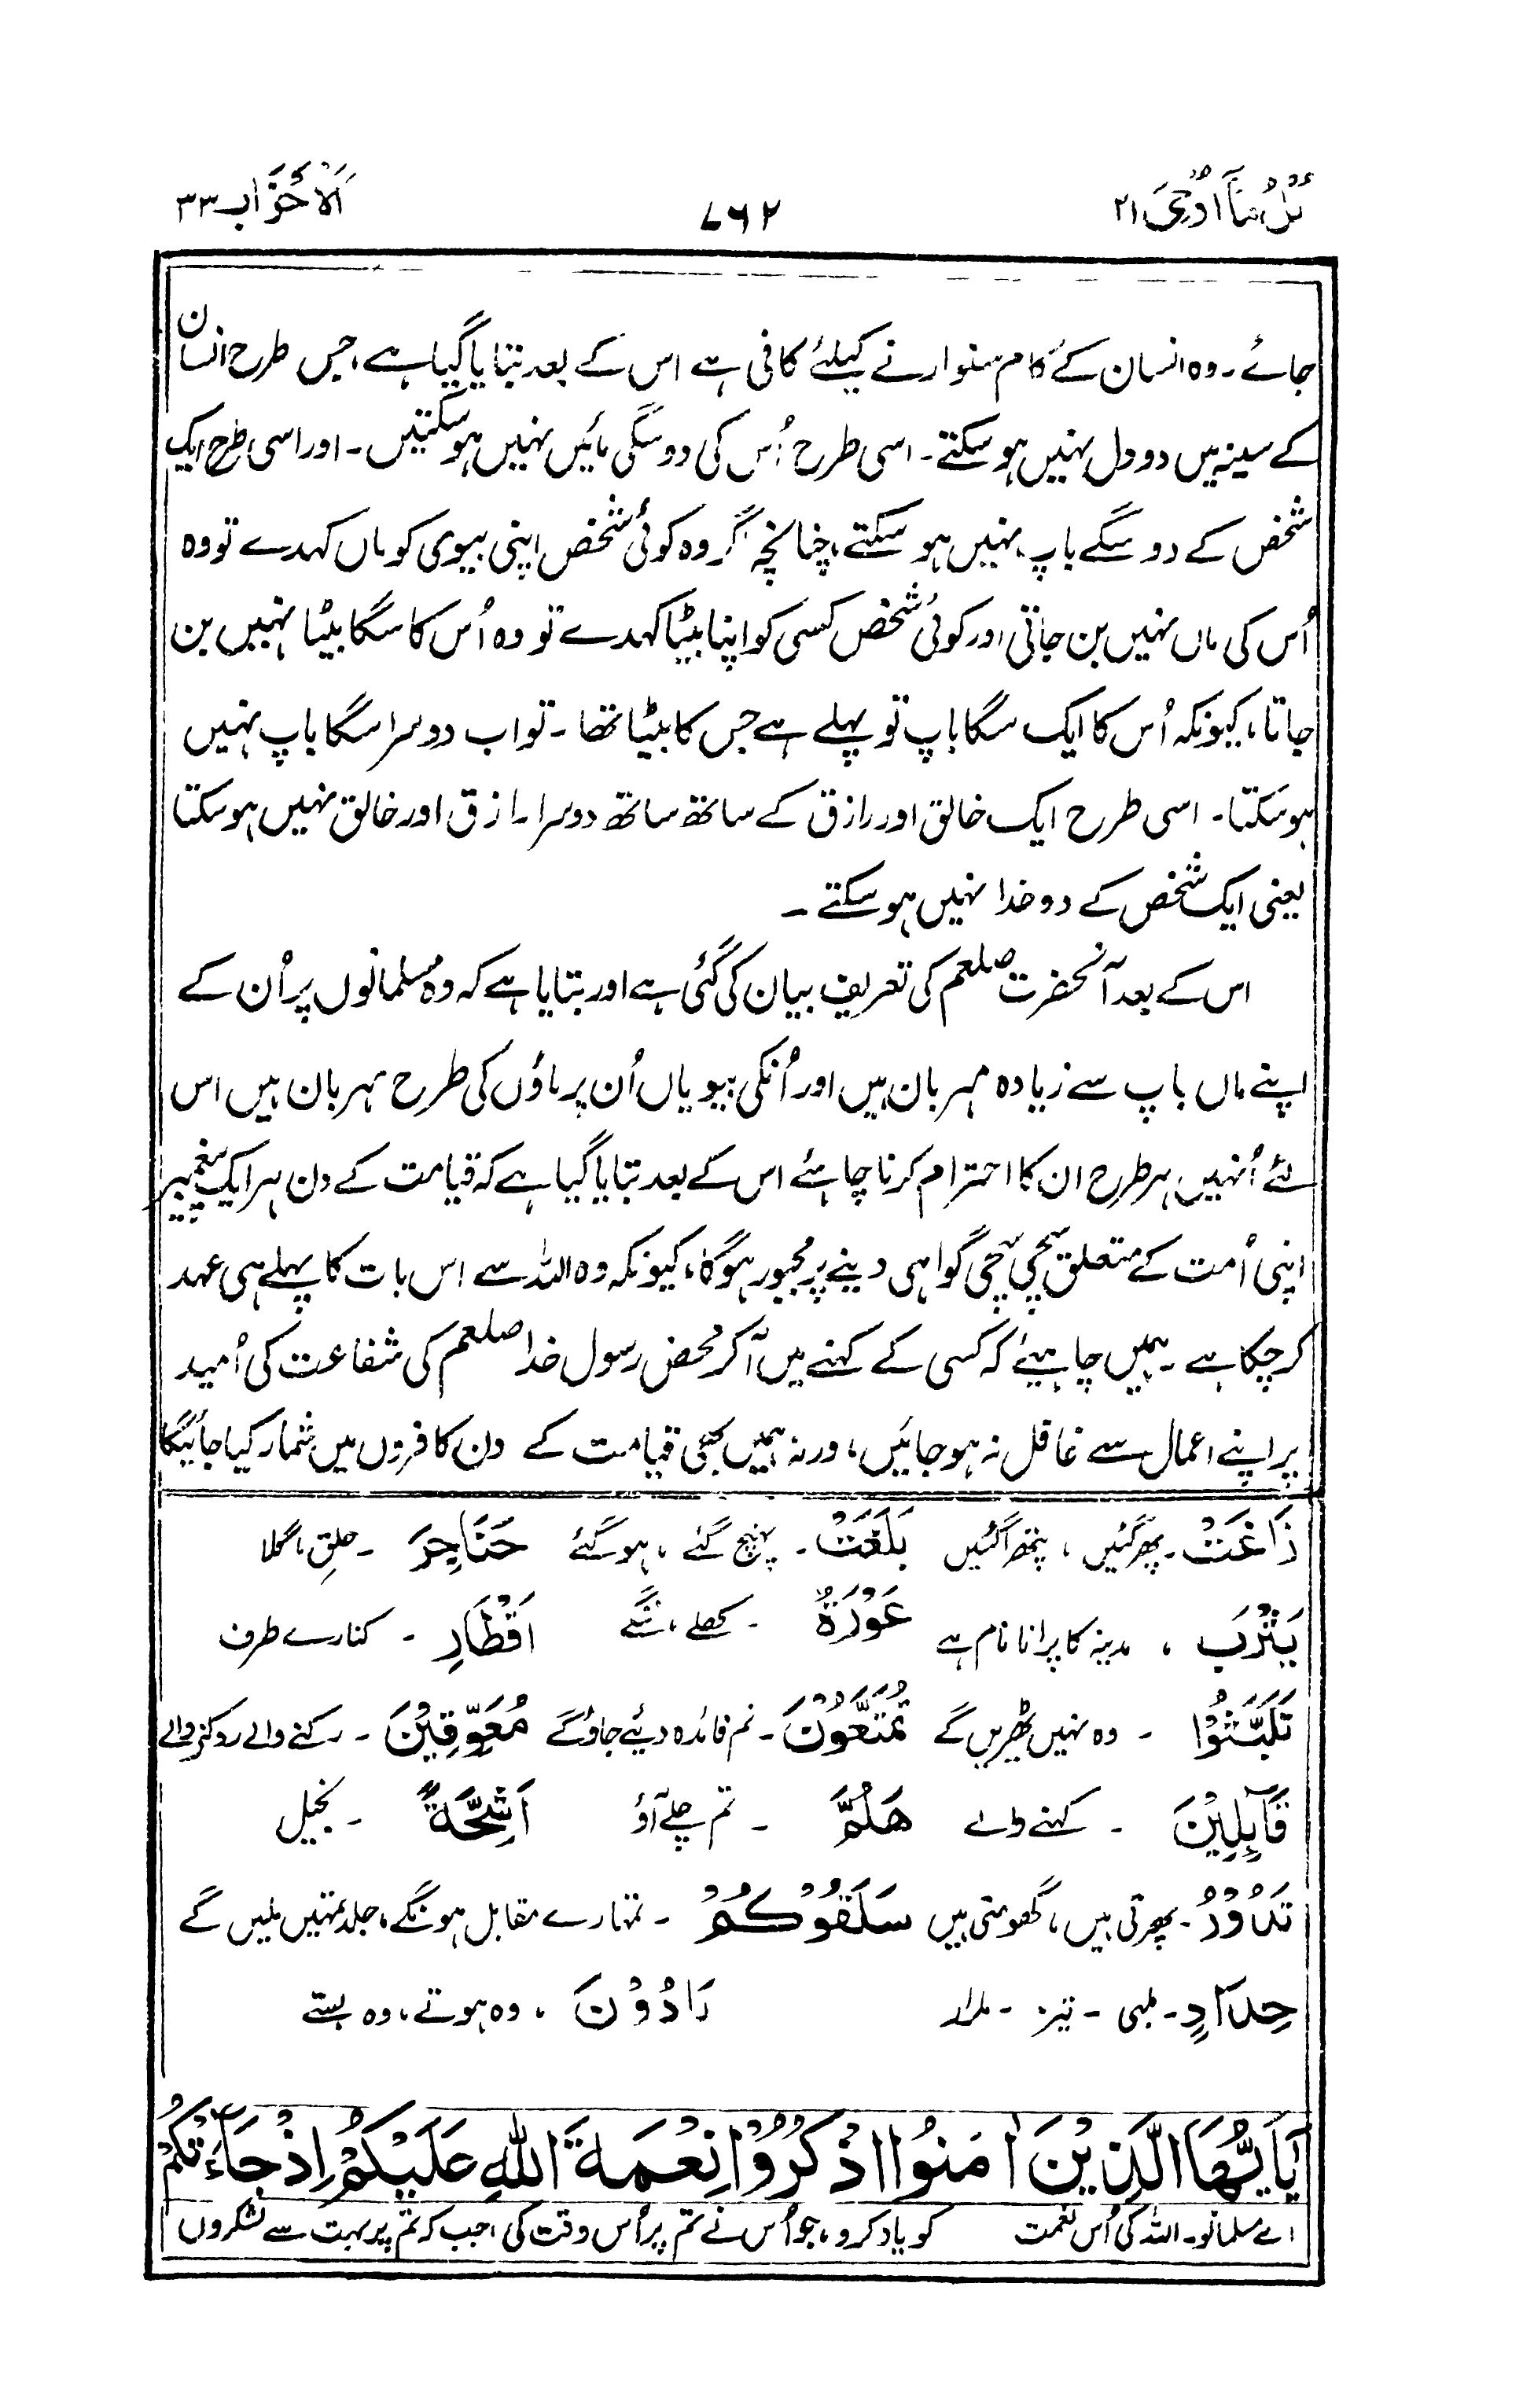 اُتْلُ مَاۤ اُوْحِیَ ۲۱
۷۶۲
اَلْاَحْزَاب ۳۳
جائے۔ وہ انسان کے کام سنوارنے کیلئے کافی ہے اس کے بعد بتایا گیا ہے، جس طرح انسان
کے سینہ میں دو دل نہیں ہو سکتے۔ اسی طرح اُس کی دو سگی مائیں نہیں ہو سکتیں۔ اور اسی طرح ایک
شخص کے دو سگے باپ نہیں ہو سکتے، چنانچہ گر وہ کوئی شخص اپنی بیوی کو ماں کہدے تو وہ
اُس کی ماں نہیں بن جاتی اور کوئی شخص کسی کو اپنا بیٹا کہدے تو وہ اُس کا سگا بیٹا نہیں بن
جاتا، کیونکہ اُس کا ایک سگا باپ تو پہلے ہے جس کا بیٹا تھا۔ تو اب دوسرا سگا باپ نہیں
ہو سکتا۔ اسی طرح ایک خالق اور رازق کے ساتھ ساتھ دوسرا رازق اور خالق نہیں ہو سکتا
یعنی ایک شخص کے دو خدا نہیں ہو سکتے۔
اس کے بعد آنحضرت صلعم کی تعریف بیان کی گئی ہے اور بتایا ہے کہ وہ مسلمانوں پر اُن کے
اپنے ماں باپ سے زیادہ مہربان ہیں اور اُنکی بیویاں اُن پر ماؤں کی طرح مہربان ہیں اس
لئے اُنہیں ہر طرح ان کا احترام کرنا چاہئے اس کے بعد بتایا گیا ہے کہ قیامت کے دن ہر ایک پیغمبر
اپنی اُمت کے متعلق سچی سچی گواہی دینے پر مجبور ہوگا، کیونکہ وہ اللہ سے اس بات کا پہلے ہی عہد
کر چکا ہے۔ ہمیں چاہیئے کہ کسی کے کہنے میں آ کر محض رسول خدا صلعم کی شفاعت کی اُمید
پر اپنے اعمال سے غافل نہ ہو جائیں، ورنہ ہمیں بھی قیامت کے دن کافروں میں شمار کیا جائیگا
زَاغَتْ۔ پھر گئیں، پتھرا گئیں بَلَغَتْ۔ پہنچ گئے، ہو گئے حَنَاجِرَ۔ حلق، گلا
یَثْرِبَ، مدینہ کا پرانا نام ہے عَوْرَةٌ۔ کھلے، ننگے اَقْطَارِ۔ کنارے طرف
تَلَبَّثُوْا۔ وہ نہیں ٹھیریں گے تُمَتَّعُوْنَ۔ تم فائدہ دیئے جاؤ گے مُعَوِّقِیْنَ۔ رکنے والے روکنے والے
قَآئِلِیْنَ۔ کہنے والے هَلُمَّ۔ تم چلے آؤ اَشِحَّةً۔ بخیل
تَدُوْرُ۔ پھرتی ہیں، گھومتی ہیں سَلَقُوْكُمْ۔ تمہارے مقابل ہونگے، جلد تمہیں ملیں گے
حِدَادٍ۔ لمبی۔ تیز۔ بَادُوْنَ، وہ ہوتے، وہ بستے
یٰۤاَیُّهَا الَّذِیْنَ اٰمَنُوا اذْكُرُوْا نِعْمَةَ اللّٰهِ عَلَیْكُمْ اِذْ جَآءَتْكُمْ
اے مسلمانو۔ اللہ کی اُس نعمت کو یاد کرو، جو اُس نے تم پر اُس وقت کی، جب کہ تم پر بہت سے لشکروں